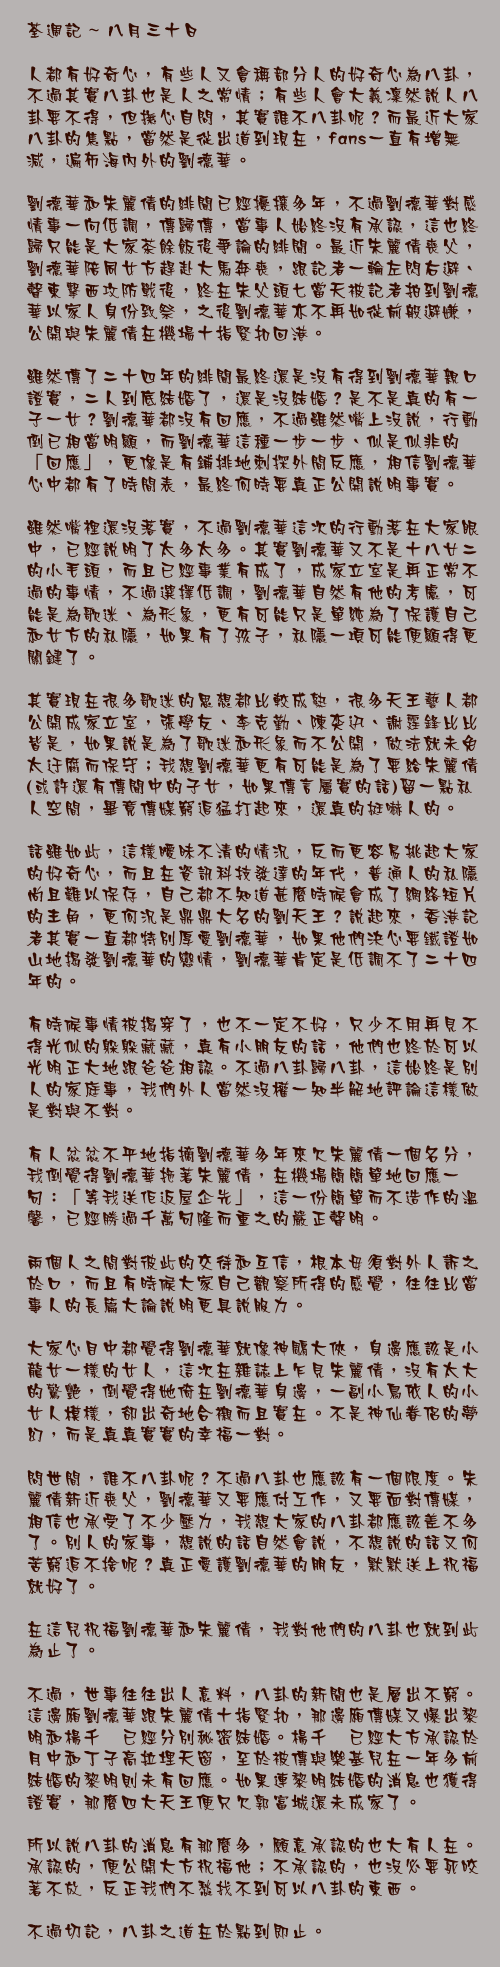 荃週記 ~ 八月三十日
人都有好奇心，有些人又會稱部分人的好奇心為八卦，
不過其實八卦也是人之常情；有些人會大義凜然說人八
卦要不得，但撫心自問，其實誰不八卦呢？而最近大家
八卦的焦點，當然是從出道到現在，fans一直有增無
減，遍布海內外的劉德華。
劉德華和朱麗倩的緋聞已經擾攘多年，不過劉德華對感
情事一向低調，傳歸傳，當事人始終沒有承認，這也終
歸只能是大家茶餘飯後爭論的緋聞。最近朱麗倩喪父，
劉德華陪同女方趕赴大馬奔喪，跟記者一輪左閃右避、
聲東擊西攻防戰後，終在朱父頭七當天被記者拍到劉德
華以家人身份致祭，之後劉德華亦不再如從前般避嫌，
公開與朱麗倩在機場十指緊扣回港。
雖然傳了二十四年的緋聞最終還是沒有得到劉德華親口
證實，二人到底結婚了，還是沒結婚？是不是真的有一
子一女？劉德華都沒有回應，不過雖然嘴上沒說，行動
倒已相當明顯，而劉德華這種一步一步、似是似非的
「回應」，更像是有鋪排地刺探外間反應，相信劉德華
心中都有了時間表，最終何時要真正公開說明事實。
雖然嘴裡還沒落實，不過劉德華這次的行動落在大家眼
中，已經說明了太多太多。其實劉德華又不是十八廿二
的小毛頭，而且已經事業有成了，成家立室是再正常不
過的事情，不過選擇低調，劉德華自然有他的考慮，可
能是為歌迷、為形象，更有可能只是單純為了保護自己
和女方的私隱，如果有了孩子，私隱一項可能便顯得更
關鍵了。
其實現在很多歌迷的思想都比較成熟，很多天王藝人都
公開成家立室，張學友、李克勤、陳奕迅、謝霆鋒比比
皆是，如果說是為了歌迷和形象而不公開，做法就未免
太迂腐而保守；我想劉德華更有可能是為了要給朱麗倩
(或許還有傳聞中的子女，如果傳言屬實的話)留一點私
人空間，畢竟傳媒窮追猛打起來，還真的挺嚇人的。
話雖如此，這樣曖昧不清的情況，反而更容易挑起大家
的好奇心，而且在資訊科技發達的年代，普通人的私隱
尚且難以保存，自己都不知道甚麼時候會成了網路短片
的主角，更何況是鼎鼎大名的劉天王？說起來，香港記
者其實一直都特別厚愛劉德華，如果他們決心要鐵證如
山地揭發劉德華的戀情，劉德華肯定是低調不了二十四
年的。
有時候事情被揭穿了，也不一定不好，只少不用再見不
得光似的躲躲藏藏，真有小朋友的話，他們也終於可以
光明正大地跟爸爸相認。不過八卦歸八卦，這始終是別
人的家庭事，我們外人當然沒權一知半解地評論這樣做
是對與不對。
有人忿忿不平地指摘劉德華多年來欠朱麗倩一個名分，
我倒覺得劉德華拖著朱麗倩，在機場簡簡單地回應一
句：「等我送佢返屋企先」，這一份簡單而不造作的溫
馨，已經勝過千萬句隆而重之的嚴正聲明。
兩個人之間對彼此的交待和互信，根本毋須對外人訴之
於口，而且有時候大家自己觀察所得的感覺，往往比當
事人的長篇大論說明更具說服力。
大家心目中都覺得劉德華就像神鵰大俠，身邊應該是小
龍女一樣的女人，這次在雜誌上乍見朱麗倩，沒有太大
的驚艷，倒覺得她倚在劉德華身邊，一副小鳥依人的小
女人模樣，卻出奇地合襯而且實在。不是神仙眷侶的夢
幻，而是真真實實的幸福一對。
問世間，誰不八卦呢？不過八卦也應該有一個限度。朱
麗倩新近喪父，劉德華又要應付工作，又要面對傳媒，
相信也承受了不少壓力，我想大家的八卦都應該差不多
了。別人的家事，想說的話自然會說，不想說的話又何
苦窮追不捨呢？真正愛護劉德華的朋友，默默送上祝福
就好了。
在這兒祝福劉德華和朱麗倩，我對他們的八卦也就到此
為止了。
不過，世事往往出人意料，八卦的新聞也是層出不窮。
這邊廂劉德華跟朱麗倩十指緊扣，那邊廂傳媒又爆出黎
明和楊千　已經分別秘密結婚。楊千　已經大方承認於
月中和丁子高拉埋天窗，至於被傳與樂基兒在一年多前
結婚的黎明則未有回應。如果連黎明結婚的消息也獲得
證實，那麼四大天王便只欠郭富城還未成家了。
所以說八卦的消息有那麼多，願意承認的也大有人在。
承認的，便公開大方祝福他；不承認的，也沒必要死咬
著不放，反正我們不愁找不到可以八卦的東西。
不過切記，八卦之道在於點到即止。